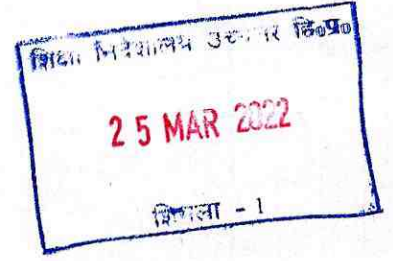 शिक्षा निदेशालय उच्चतर हि०प्र०
25 MAR 2022
शिमला - 1